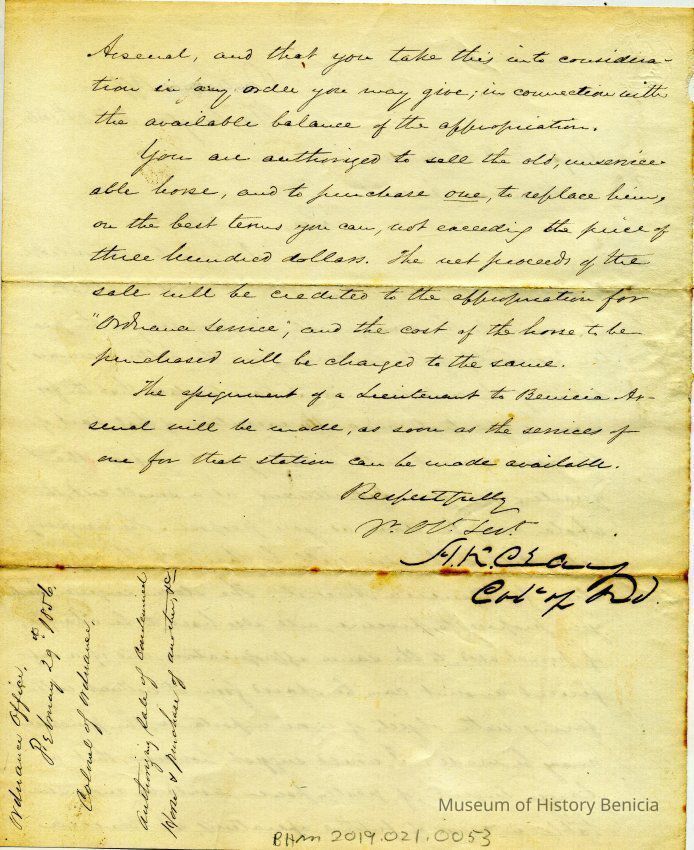 Arsenal, and that you take this into considera-
tion in any order you may give; in connection with
the available balance of the appropriation.
You are authorized to sell the old, unservice-
able horse, and to purchase one, to replace him,
on the best terms you can, not exceeding the price of
three hundred dollars. The net proceeds of the
sale will be credited to the appropriation for
"Ordnance Service", and the cost of the horse to be
purchased will be charged to the same.
The assignment of a Lieutenant to Benicia Ar-
senal will be made, as soon as the services of
one for that station can be made available.
Respectfully
Yr. Ob. Servt.
H. K. Craig
Col. of Ord.
Ordnance Office,
February 29th 1856.
Colonel of Ordnance,
Authorizing Sale of Condemned
Horse & purchase of another, &c
Museum of History Benicia
BHM 2019.021.0053